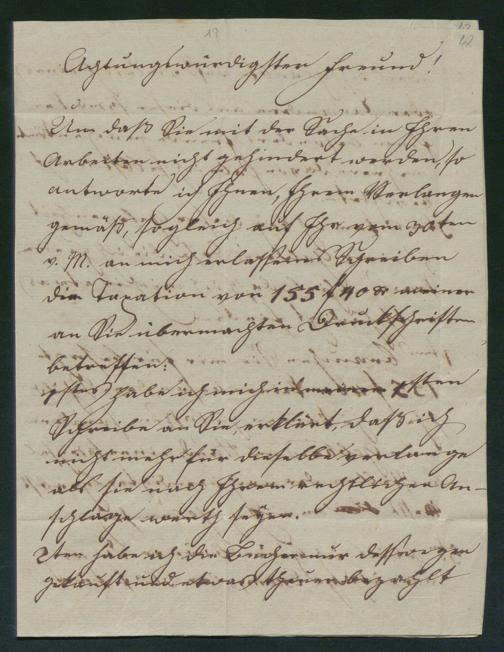 19
42
Achtungswürdigster Freund!
Um daß Sie mit der Sache in Ihren
Arbeiten nicht gehindert werden, so
antworte ich Ihnen, Ihrem Verlangen
gemäß, sogleich auf Ihr vom 30ten
v. M. an mich erlassenes Schreiben
die Taxation von 155 f 40 x meiner
an Sie übermachten Druckschriften
betreffen:
1stens habe ich mich in meinem 1sten
Schreiben an Sie erklärt, daß ich
nicht mehr für dieselbe verlange
als sie nach Ihrem rechtlichen An-
schlage werth seyen.
2ten habe ich die Bücher nur desswegen
gekauft und etwas theuer bezahlt